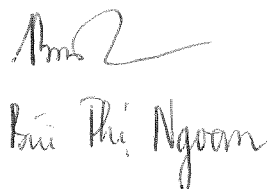 Bùi Thị Ngoan